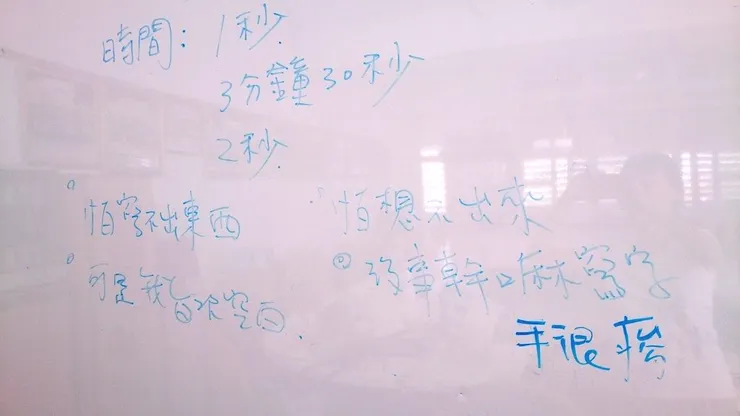 時間：1秒
3分鐘30秒
2秒
怕寫不出東西
怕想不出來
可是我 空白.
沒事幹嘛寫字
手很